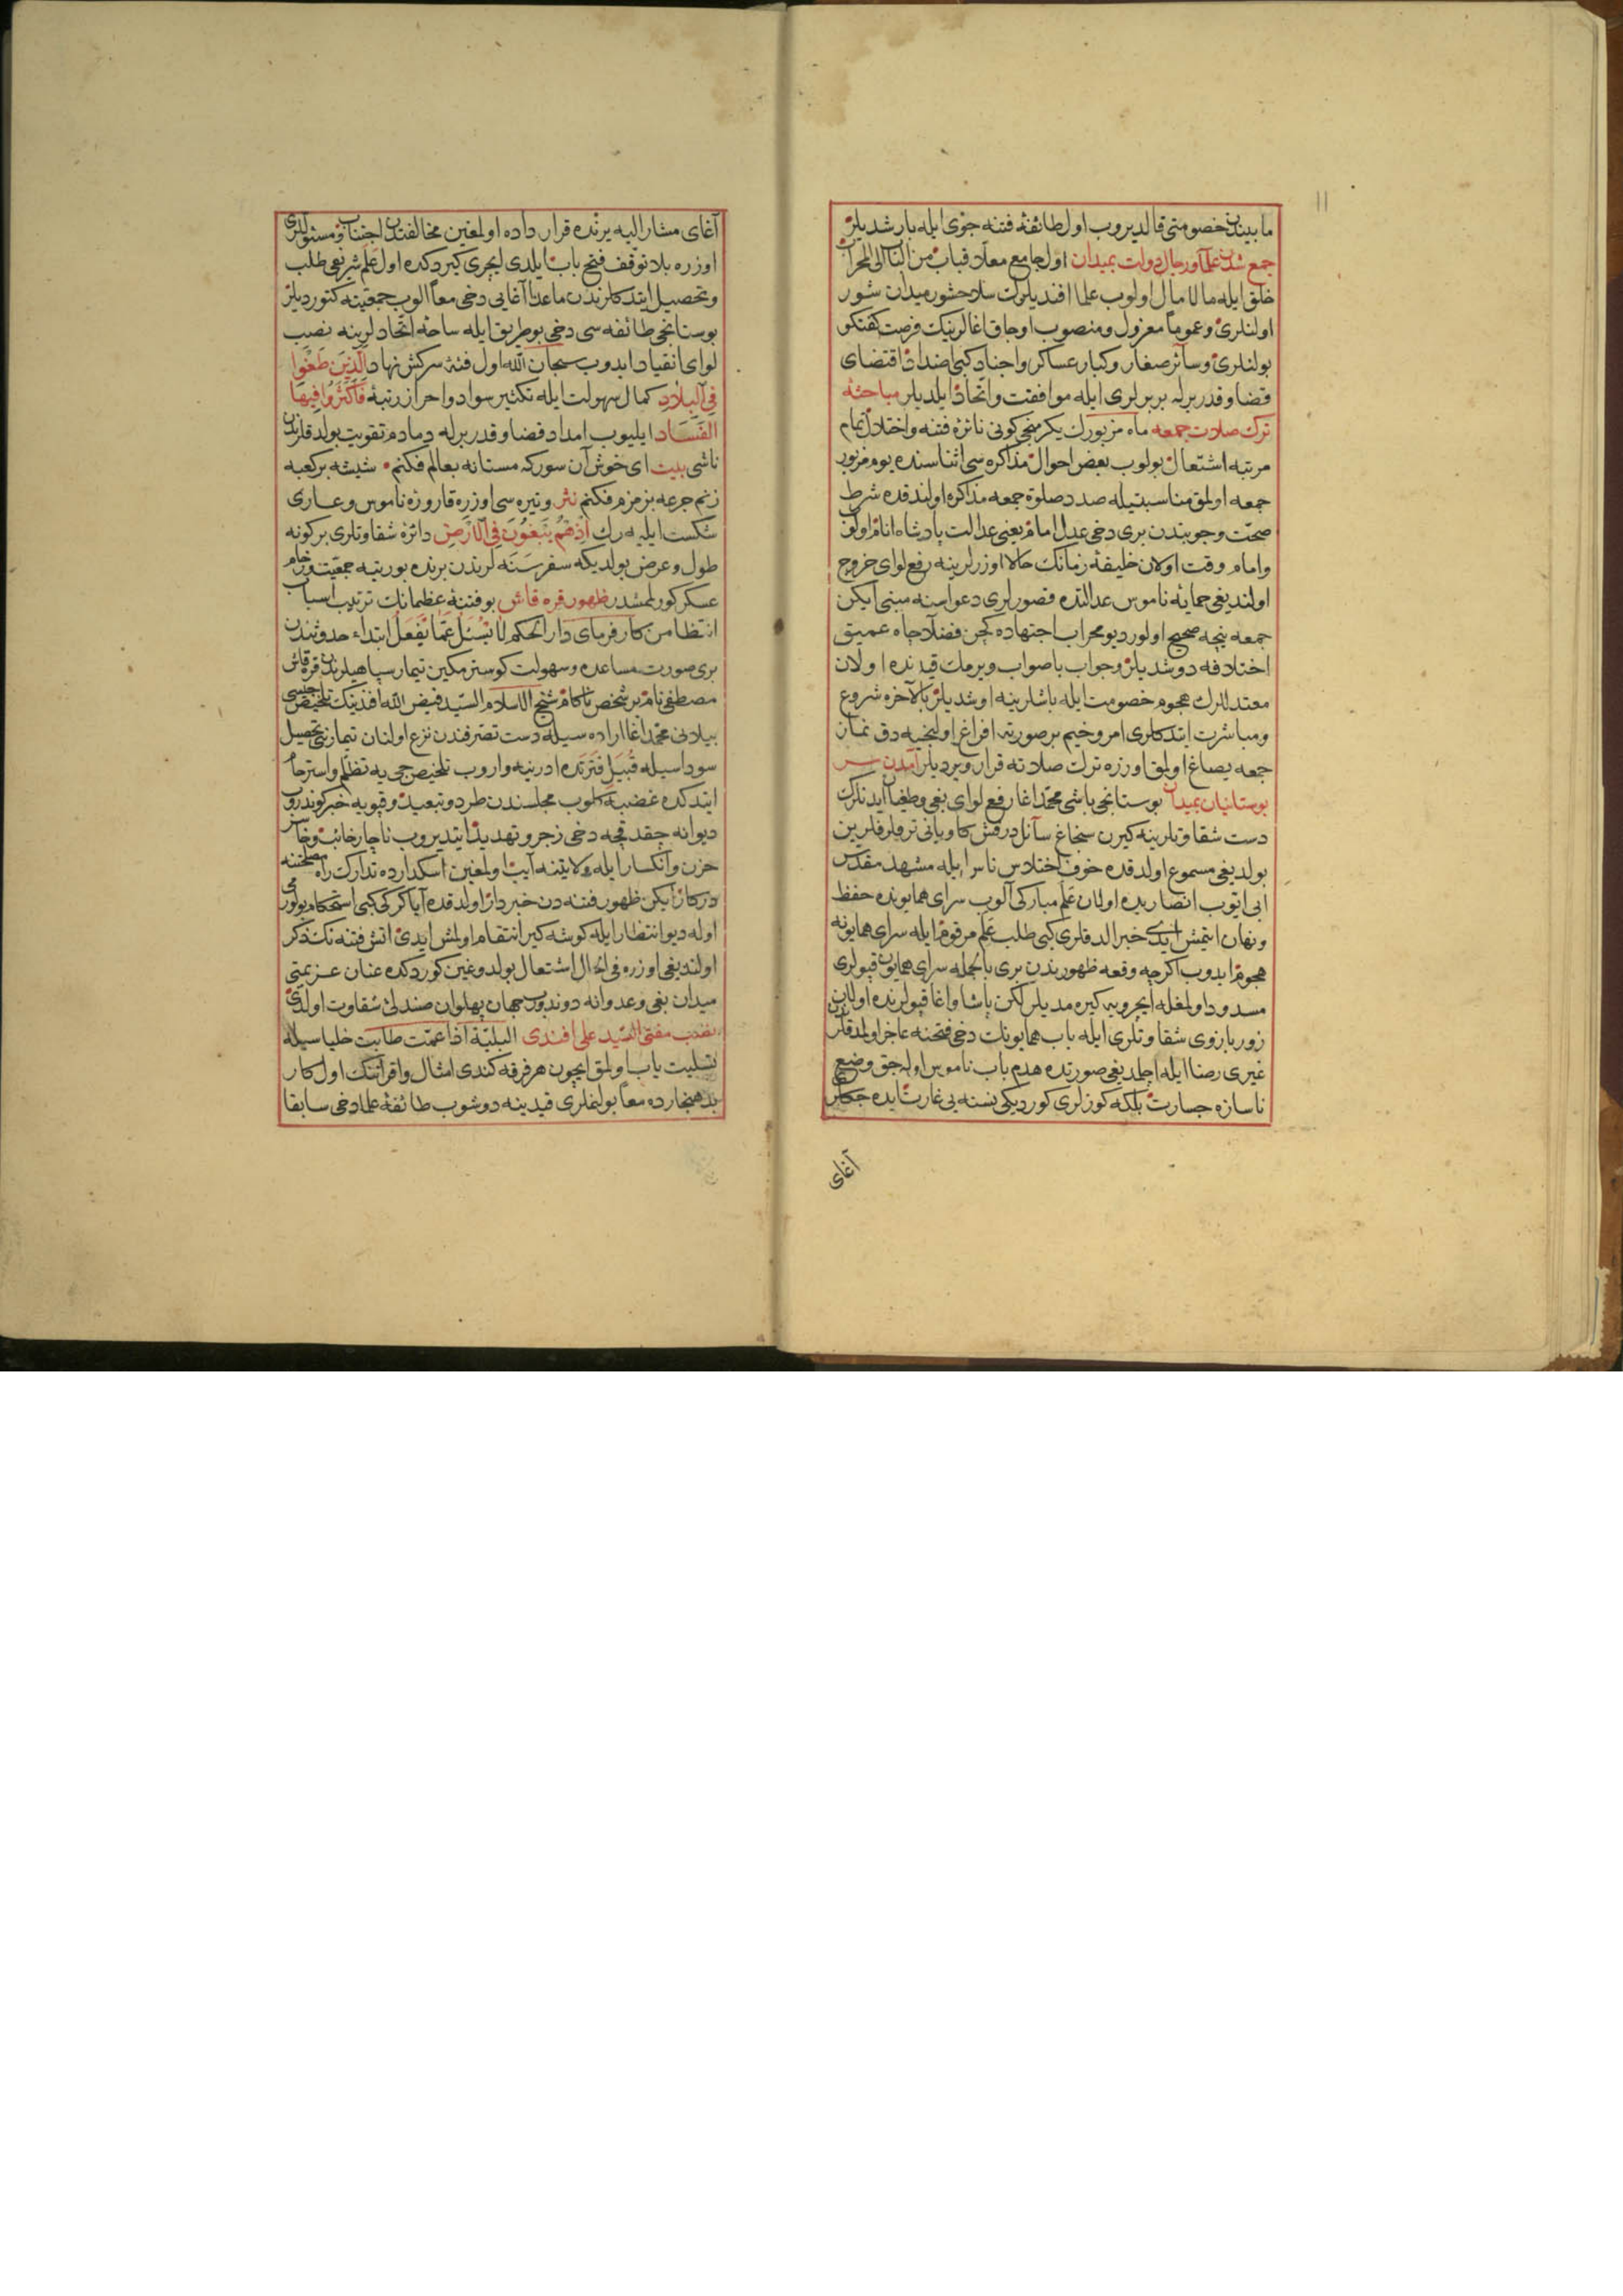 ١١
ما بيندن خصومتى قالديروب اول طائفۀ فتنه جوى ايله بارشديلر
جمع شدن علما و رجال دولت بميدان اول جامع معلا قباب من الباب الى المحراب
خلق ايله مالا مال اولوب علما افنديلرك سلاحشور ميدان شور
اولنلرى و عموماً معزول و منصوب اوجاق اغالرينك فرصت كفتكو
بولنلرى و سائر صغار و كبار عساكر و اجناد كبى اضداد اقتضاى
قضا و قدر برله بربرلرى ايله موافقت و اتحاد ايلديلر مباحثۀ
ترك صلات جمعه ماه مزبورك يكرمنجى كونى نائرۀ فتنه و اختلال تمام
مرتبه اشتعال بولوب بعض احوال مذاكره سى اثناسنده يوم مزبور
جمعه اولمق مناسبتيله صدد صلوة جمعه مذاكره اولندقده شرط
صحت و جوبندن برى دخى عدل امام يعنى عدالت پادشاه انام اولوب
و امام وقت اولان خليفۀ زمانك حالا اوزرلرينه رفع لواى خروج
اولنديغى حمايۀ ناموس عدالتده قصورلرى دعواسنه مبنى ايكن
جمعه نيجه صحيح اولور ديو محراب اجتهاده كچن فضلا چاه عميق
اختلافه دوشديلر و جواب باصواب ويرمك قيدنده اولان
معتدللرك هجوم خصومت ايله باشلرينه اوشديلر بالآخره شروع
و مباشرت ايتدكلرى امر وخيم بر صورته افراغ اولنجيه دق نماز
جمعه يصاغ اولمق اوزره ترك صلاته قرار ويرديلر آمدن سر
بوستانيان بميدان بوستانجى باشى محمد اغا رفع لواى بغى و طغيان ايدنلرك
دست شقاوتلرينه كيرن سنجاغ سائل درفش كاويانى ترفلر فلرين
بولديغى مسموع اولدقده خوف اختلاس ناس ايله مشهد مقدس
ابى ايوب انصاريده اولان علم مباركى آلوب سراى همايونده حفظ
و نهان ايتمش ايدى خبر الدقلرى كبى طلب علم مرقوم ايله سراى همايونه
هجوم ايدوب اكرچه وقعه ظهورندن برى بالجمله سراى همايون قپولرى
مسدود اولمغله ايچرويه كيره مديلر لكن پاشا و اغا قپولرنده اولان
زور بازوى شقاوتلرى ايله باب همايونك دخى فتحنه عاجز اولمدقلر
غيرى رضا ايله اچلمديغى صورتده هدم باب ناموس اوله جق وضع
ناسازه جسارت بلكه كوزلرى كورديكى نسنه يى غارت ايده جكلر
آغاى
آغاى مشار اليه يرنده قرار داده اولمغين مخالفتدن اجتناب و مسئوللرى
اوزره بلا توقف فتح باب ايلدى ايچرى كيردكده اول علم شريفى طلب
و تحصيل ايتدكلرندن ماعدا آغايى دخى معاً الوب جمعيته كتورديلر
بوستانجى طائفه سى دخى بو طريق ايله ساحۀ اتحادلرينه نصب
لواى انقياد ايدوب سبحان الله اول فئۀ سركش نهاد الَّذِينَ طَغَوْا
فِى الْبِلَادِ كمال سهولت ايله تكثير سواد و احراز رتبۀ فَأَكْثَرُوا فِيهَا
الْفَسَاد ايليوب امداد قضا و قدر برله دمادم تقويت بولدقلرندن
ناشى بيت اى خوش آن سور كه مستانه بعالم فكنم شيشه بر كعبه
زنم جرعه بزمزم فكنم نثر و تيره سى اوزره قارورۀ ناموس و عارى
شكست ايليه رك اذهم يبغون فى الارض دائرۀ شقاوتلرى بر كونه
طول و عرض بولديكه سفر سنه لرندن برنده بوريته جمعيت و ازدحام
عسكر كورلمشدر ظهور قره قاش بو فتنۀ عظمانك ترتيب اسباب
انتظامن كارفرماى دار التحكم لا يُسْئَلُ عَمَّا يَفْعَلُ ابتداء حدوثندن
برى صورت مساعده و سهولت كوسترمكين تيمار سپاهيلرندن قره قاش
مصطفى نام بر شخص ناكام شيخ الاسلام السيد فيض الله افندينك تلخيصجيسى
بيلانى محمد اغا اراده سيله دست تصرفندن نزع اولنان تيمارينى تحصيل
سوداسيله قُبَيل فترتده ادرنيه واروب تلخيصجى يه تظلم و استرحام
ايتدكده غضبه كلوب مجلسندن طرد و تبعيد و قپويه خبر كوندروب
ديوانه چقدقجه دخى زجر و تهديد ايتديروب ناچار خائب و خاسر
حزن و انكسار ايله ولايتنه آيب اولمغين اسكدارده تدارك راه مصلحتنه
دركار ايكن ظهور فتنه دن خبردار اولدقده آيا كركى كبى استحكام بولورمى
اوله ديو انتظار ايله كوشه كير انتقام اولمش ايدى اتش فتنه نك ذكر
اولنديغى اوزره فى الحال اشتعال بولدوغين كوردكده عنان عزيمتى
ميدان بغى و عدوانه دوندروب جهان پهلوان صندلى شقاوت اولدى
نصب مفتى السيد على افندى البلية اذا عمت طابت خلياسيله
تسليت ياب اولمق ايچون هر فرقه كندى امثال و اقرانك اول كار
بدهنجارده معاً بولنملرى قيدينه دوشوب طائفۀ علما دخى سابقا